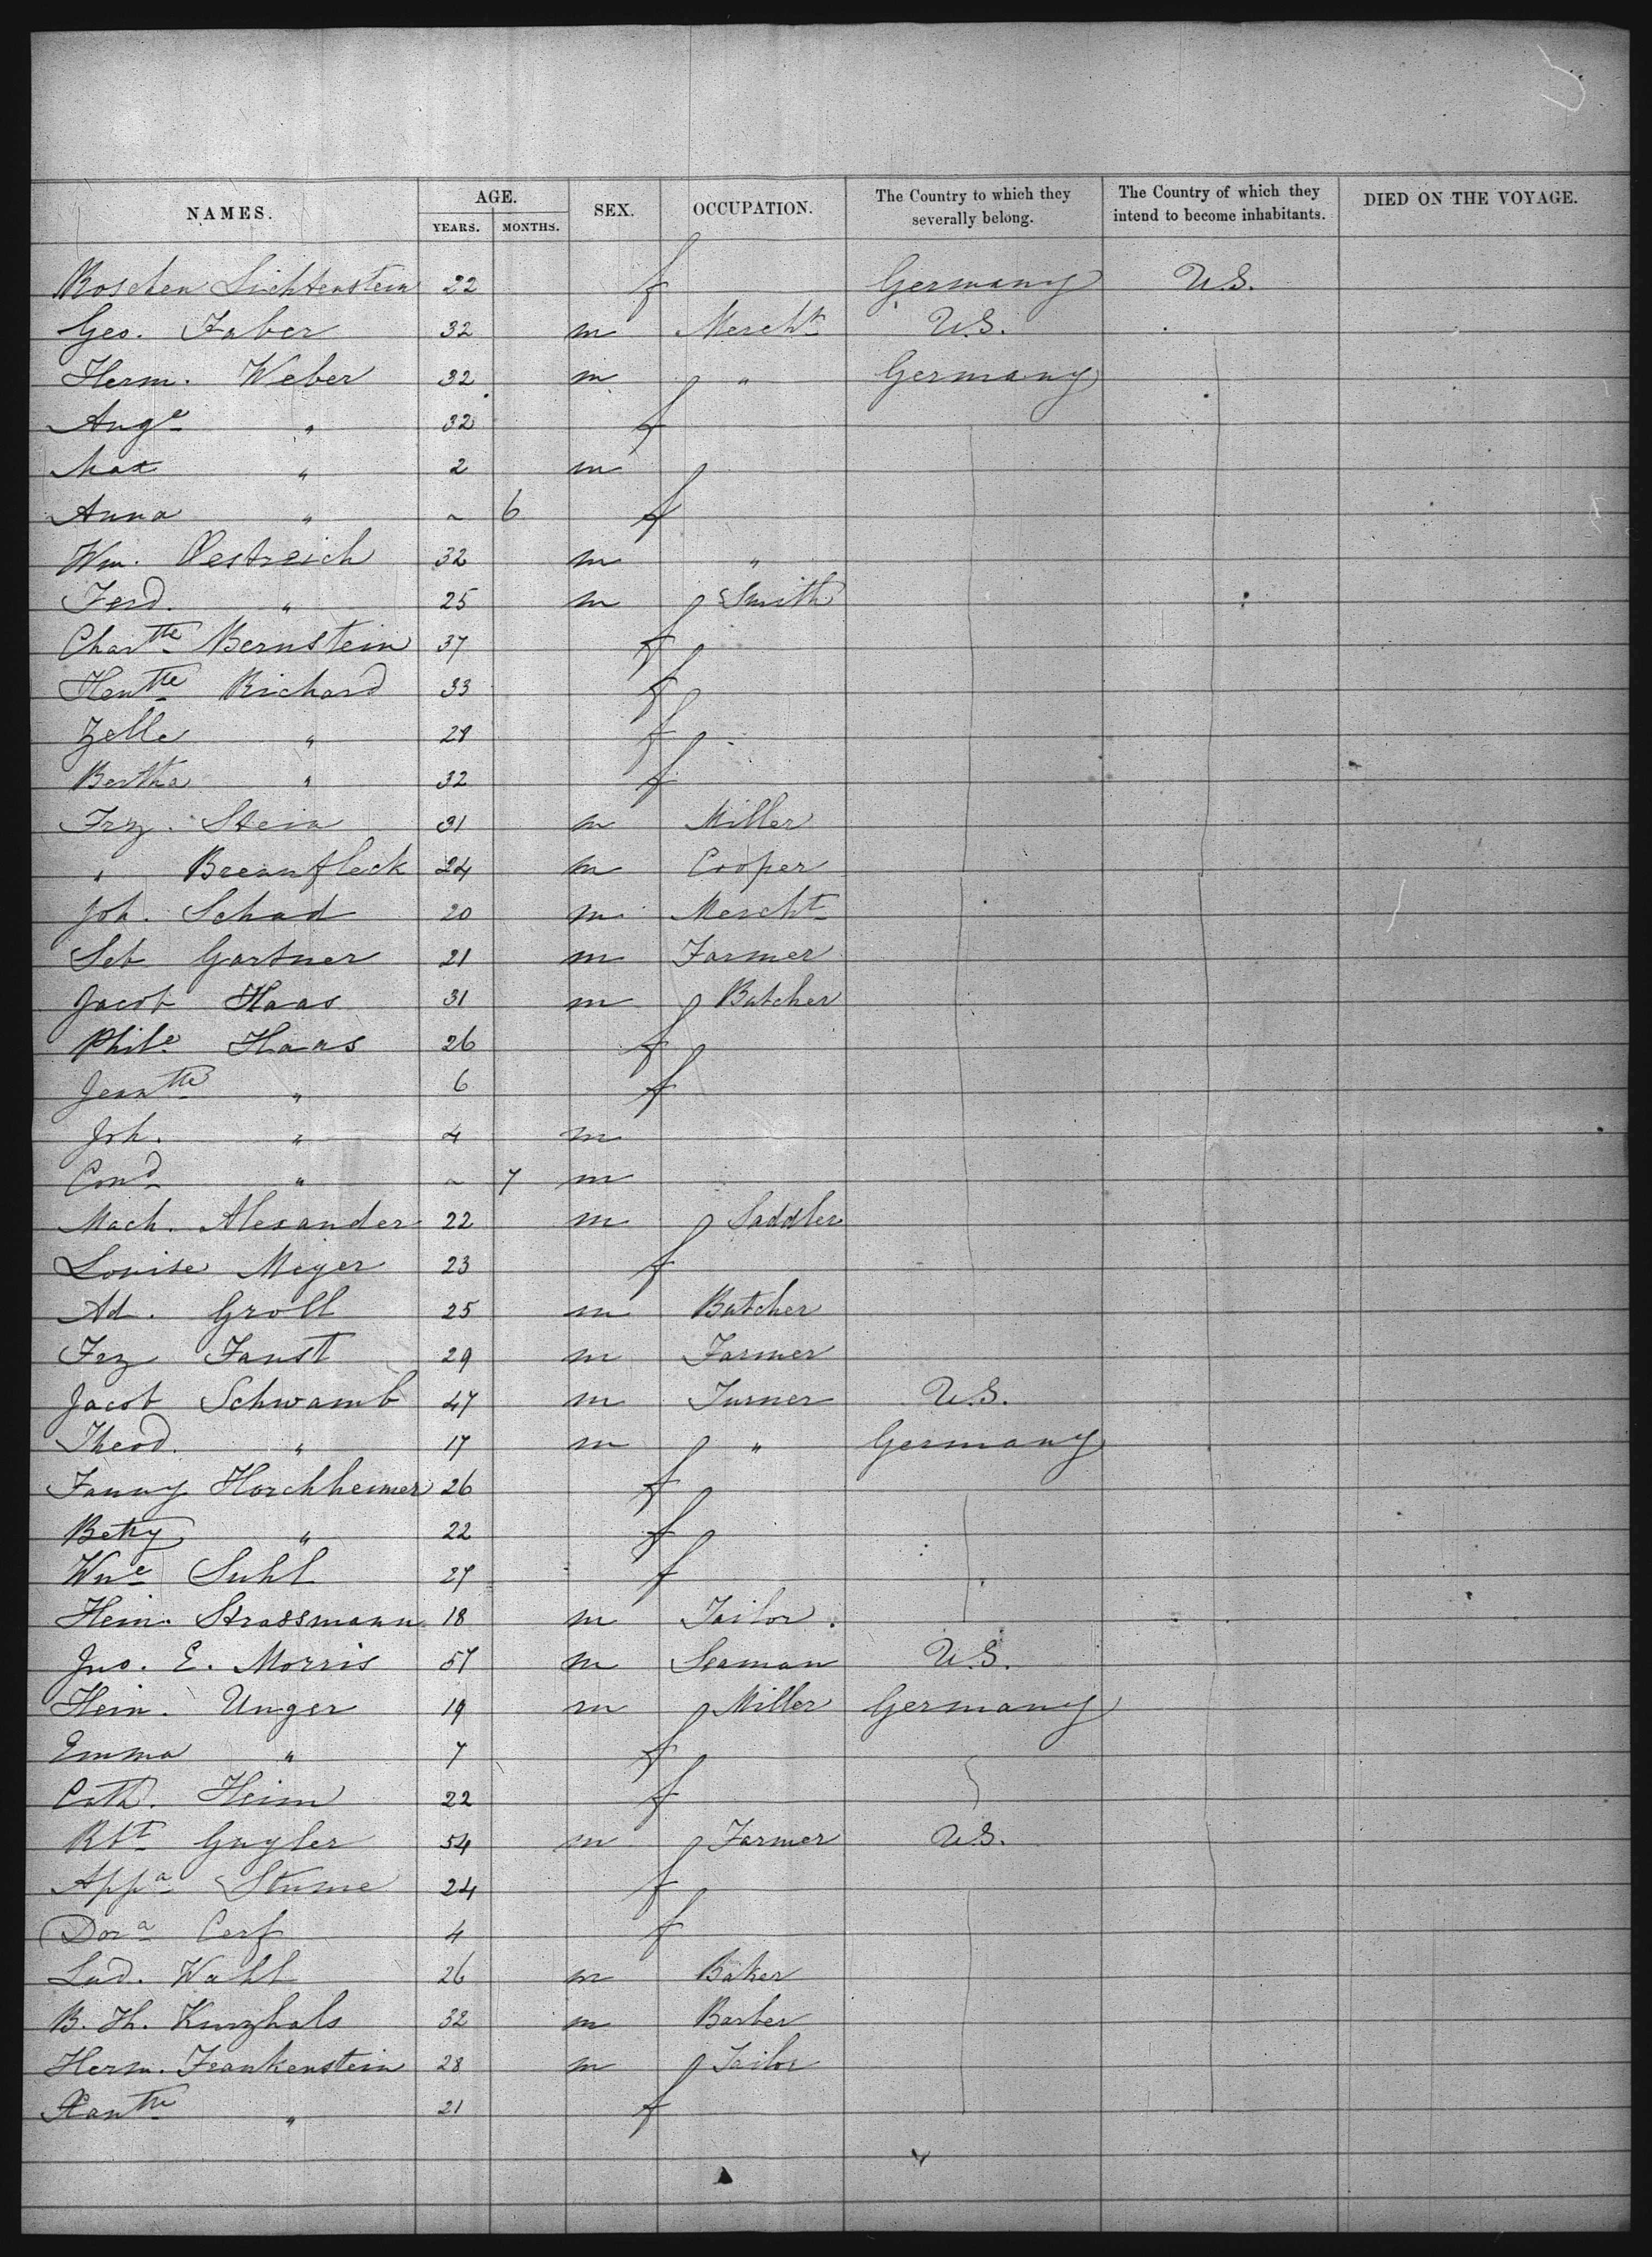 NAMES. AGE. SEX. OCCUPATION. The Country to which they severally belong. The Country of which they intend to become inhabitants. DIED ON THE VOYAGE.
YEARS. MONTHS.
Roschen Lichtenstein 22 f Germany U.S.
Geo. Faber 32 m Mercht U.S.
Herm. Weber 32 m " Germany
Auge " 32 f
Max " 2 m
Anna " ~ 6 f
Wm. Oestreich 32 m "
Ferd. " 25 m Smith
Chartte Bernstein 37 f
Hentte Richard 33 f
Zelle " 28 f
Bertha " 32 f
Frz. Stein 31 m Miller
" Brennfleck 24 m Cooper
Joh. Schad 20 m Mercht
Seb Gartner 21 m Farmer
Jacob Haas 31 m Butcher
Phile Haas 26 f
Jeantte " 6 f
Joh. " 4 m
Cond " ~ 7 m
Mach. Alexander 22 m Saddler
Louise Meyer 23 f
Ad. Groll 25 m Butcher
Frz Faust 29 m Farmer
Jacob Schwamb 47 m Turner U.S.
Theod. " 17 m " Germany
Fanny Horchheimer 26 f
Betty " 22 f
Wne Suhl 27 f
Hein. Strassmann 18 m Tailor
Jno. E. Morris 57 m Seaman U.S.
Hein. Unger 19 m Miller Germany
Emma " 7 f
Cath. Heim 22 f
Rbt Gugler 54 m Farmer U.S.
Appa Stume 24 f
Dora Cerf 4 f
Lud. Wahl 26 m Baker
B. H. Kurzhals 32 m Barber
Herm. Frankenstein 28 m Tailor
" 21 f